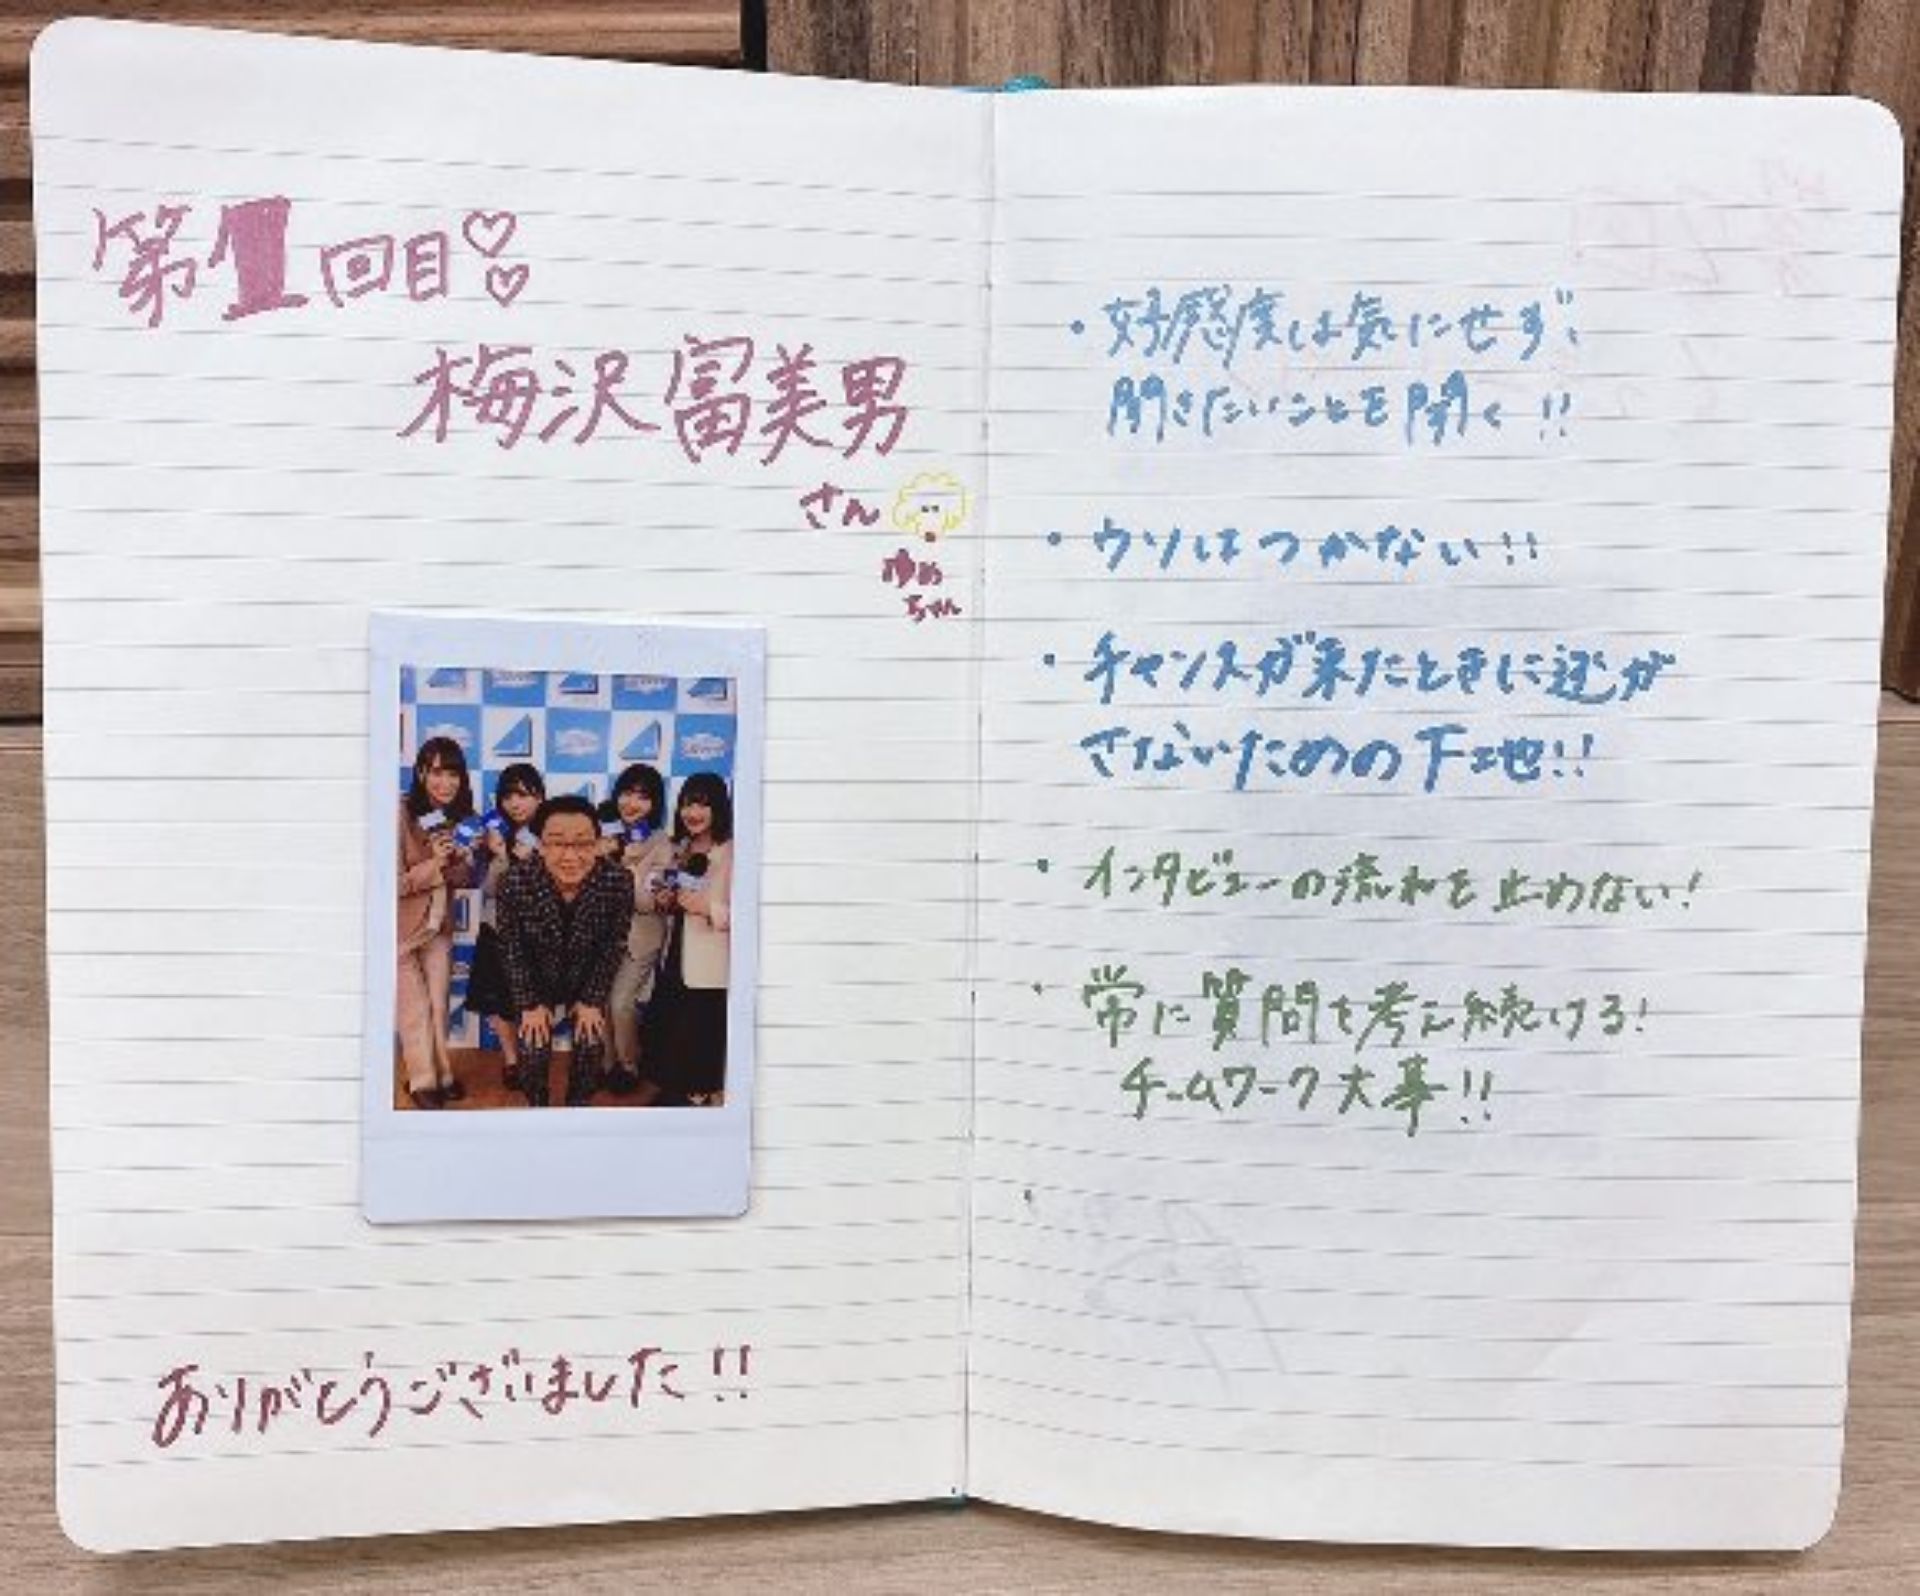 第1回目♡♡
梅沢富美男
さん
ゆめ
ちゃん
ありがとうございました!!
・好感度は気にせず、
聞きたいことを聞く!!
・ウソはつかない!!
・チャンスが来たときに逃が
さないための下地!!
・インタビューの流れを止めない!
・常に質問を考え続ける!
チームワーク大事!!
・